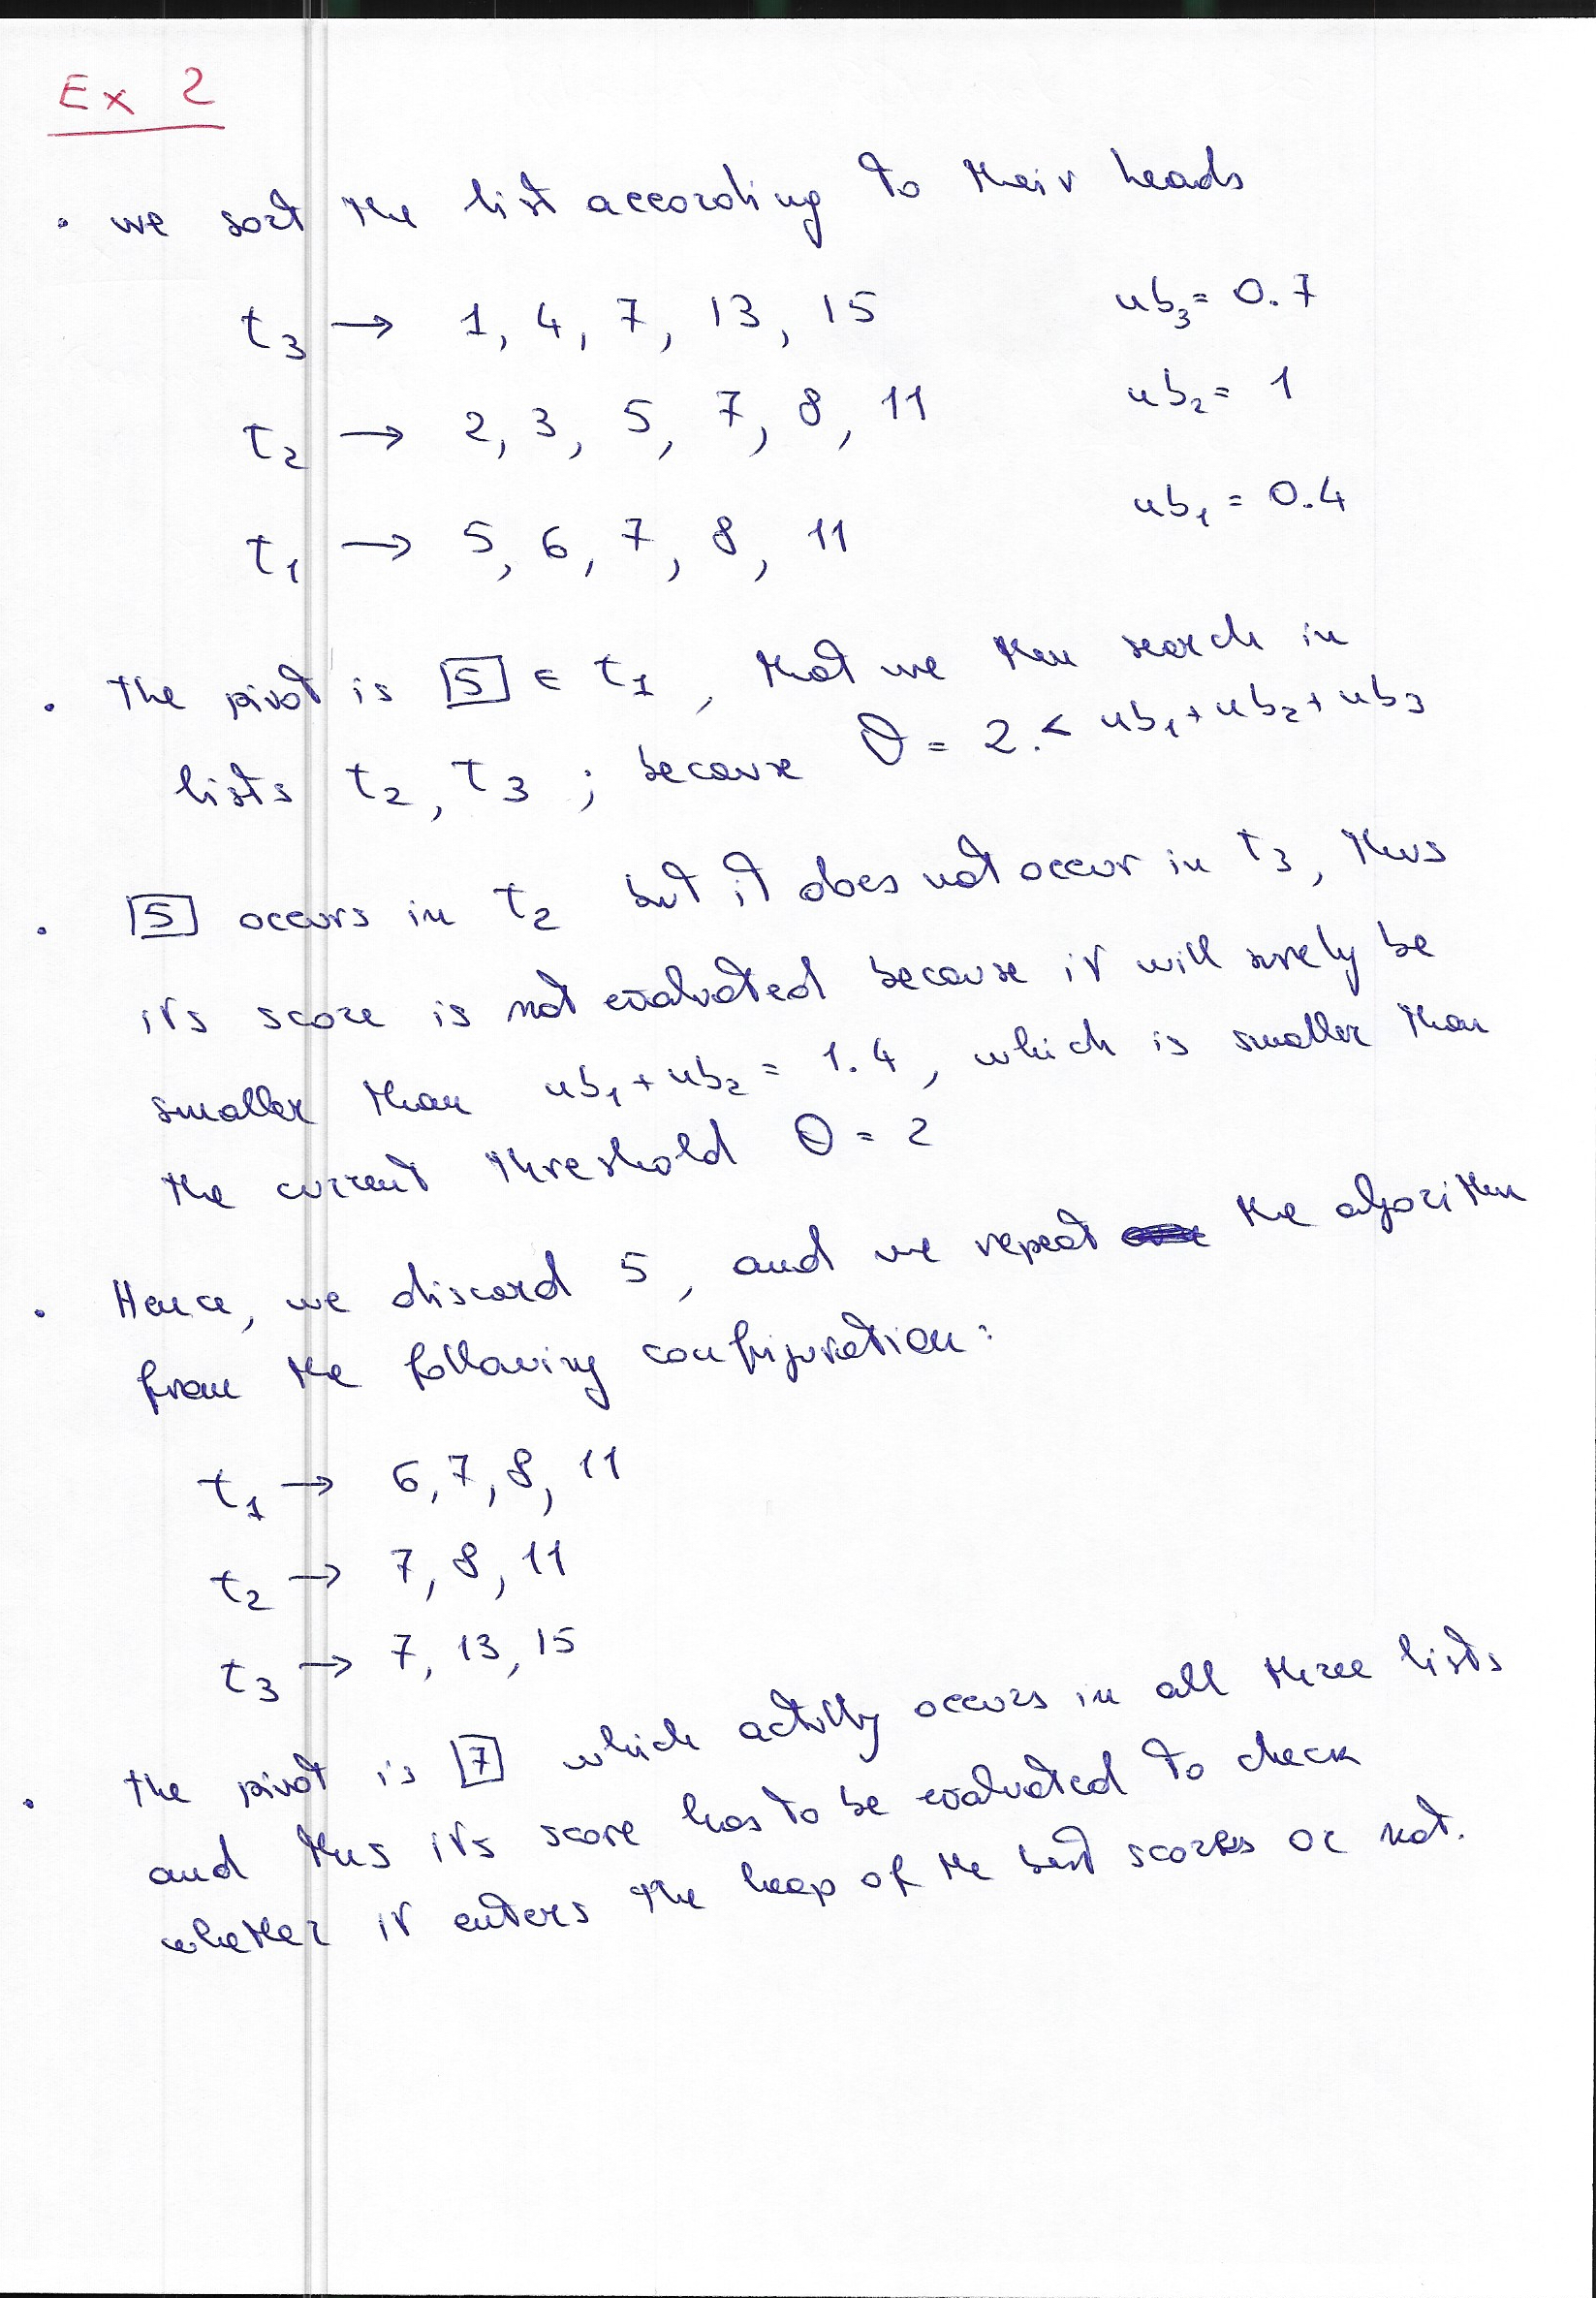 Ex 2
• we sort the list according to their heads
t3 → 1, 4, 7, 13, 15 ub3 = 0.7
t2 → 2, 3, 5, 7, 8, 11 ub2 = 1
t1 → 5, 6, 7, 8, 11 ub1 = 0.4
• The pivot is 5 ∈ t1, that we then search in
lists t2, t3 ; because θ = 2 < ub1 + ub2 + ub3
• 5 occurs in t2 but it does not occur in t3, thus
its score is not evaluated because it will surely be
smaller than ub1 + ub2 = 1.4, which is smaller than
the current threshold θ = 2
• Hence, we discard 5, and we repeat the algorithm
from the following configuration:
t1 → 6, 7, 8, 11
t2 → 7, 8, 11
t3 → 7, 13, 15
• the pivot is 7 which actully occurs in all three lists
and thus its score has to be evaluated to check
whether it enters the heap of the best scores or not.